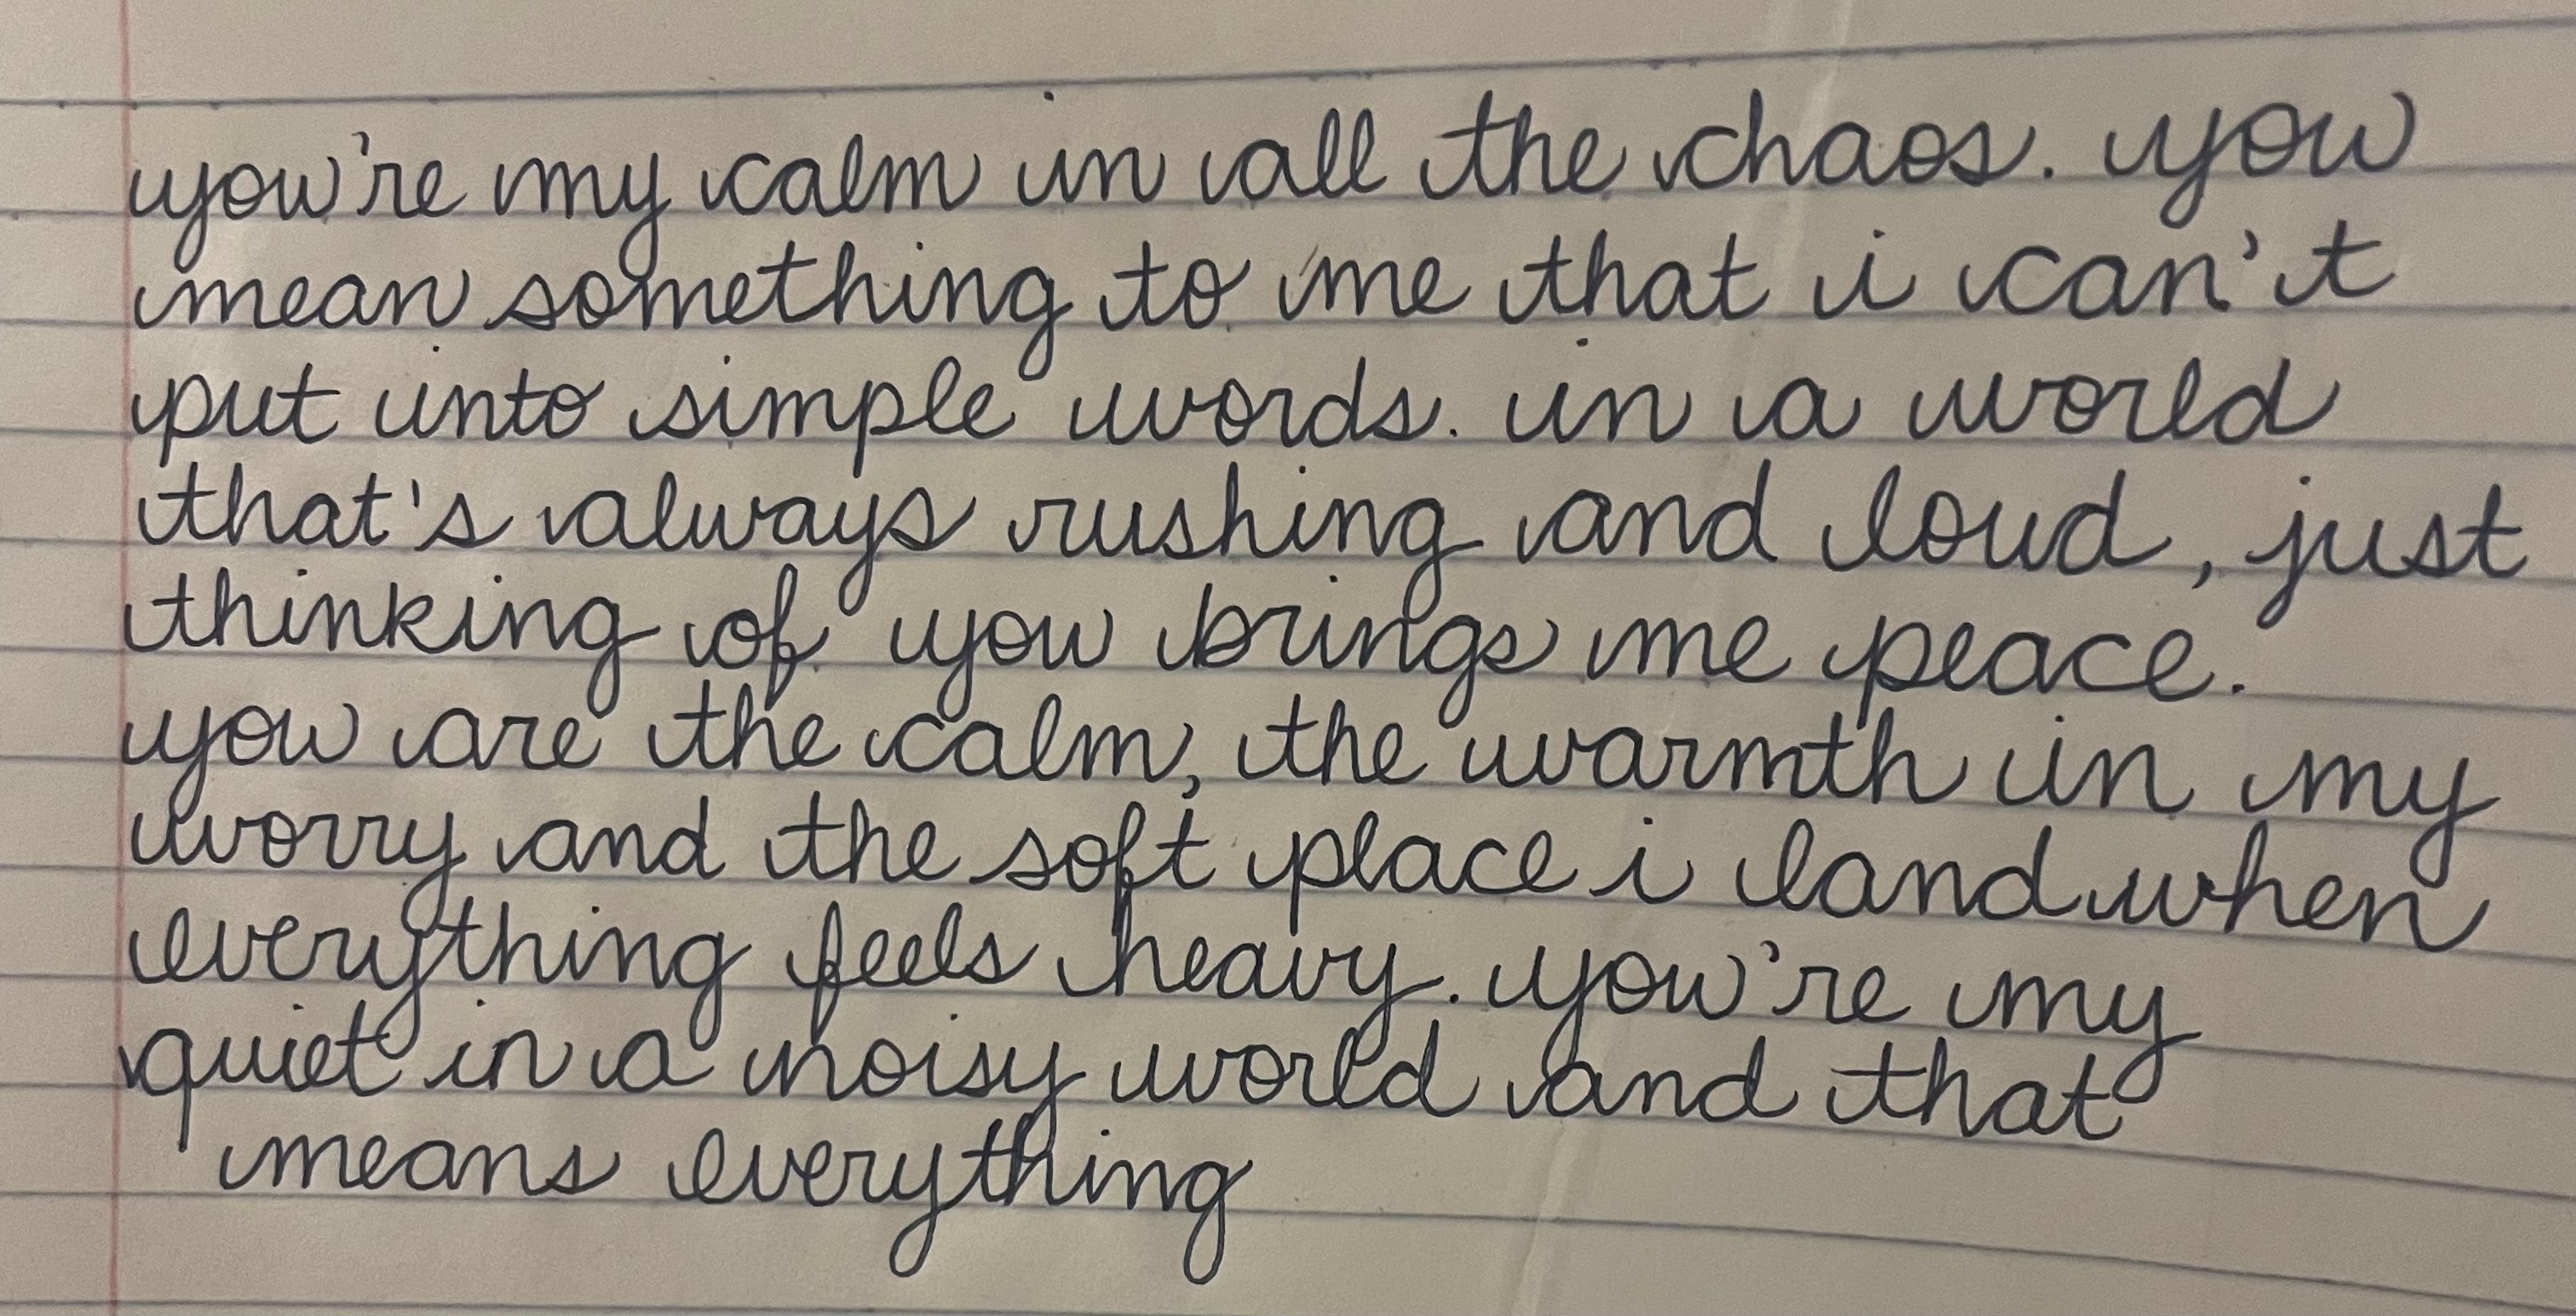 you're my calm in all the chaos. you
mean something to me that i can't
put into simple words. in a world
that's always rushing and loud, just
thinking of you brings me peace.
you are the calm, the warmth in my
worry and the soft place i land when
everything feels heavy. you're my
quiet in a noisy world and that
means everything